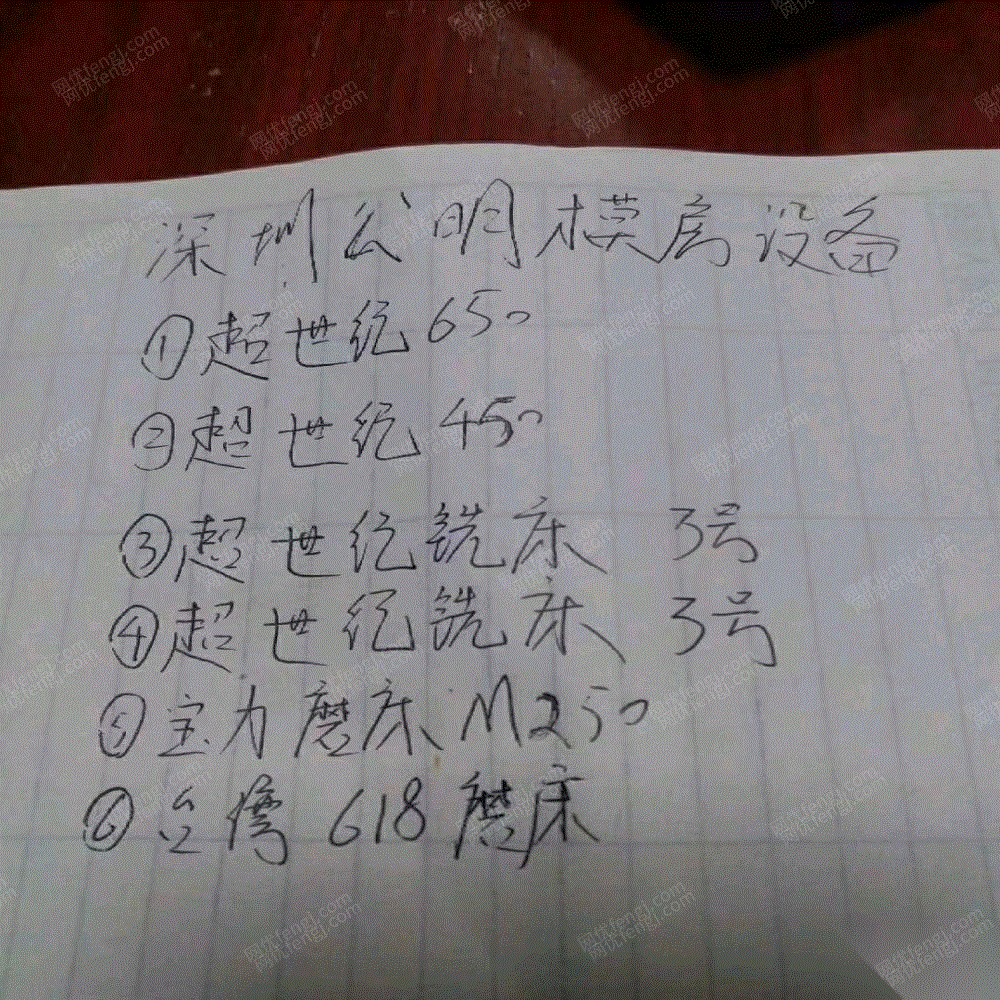 深圳公明模房设备
①超世纪650
②超世纪450
③超世纪铣床 3号
④超世纪铣床 3号
⑤宝力磨床M250
⑥台湾618磨床
网优fengj.com